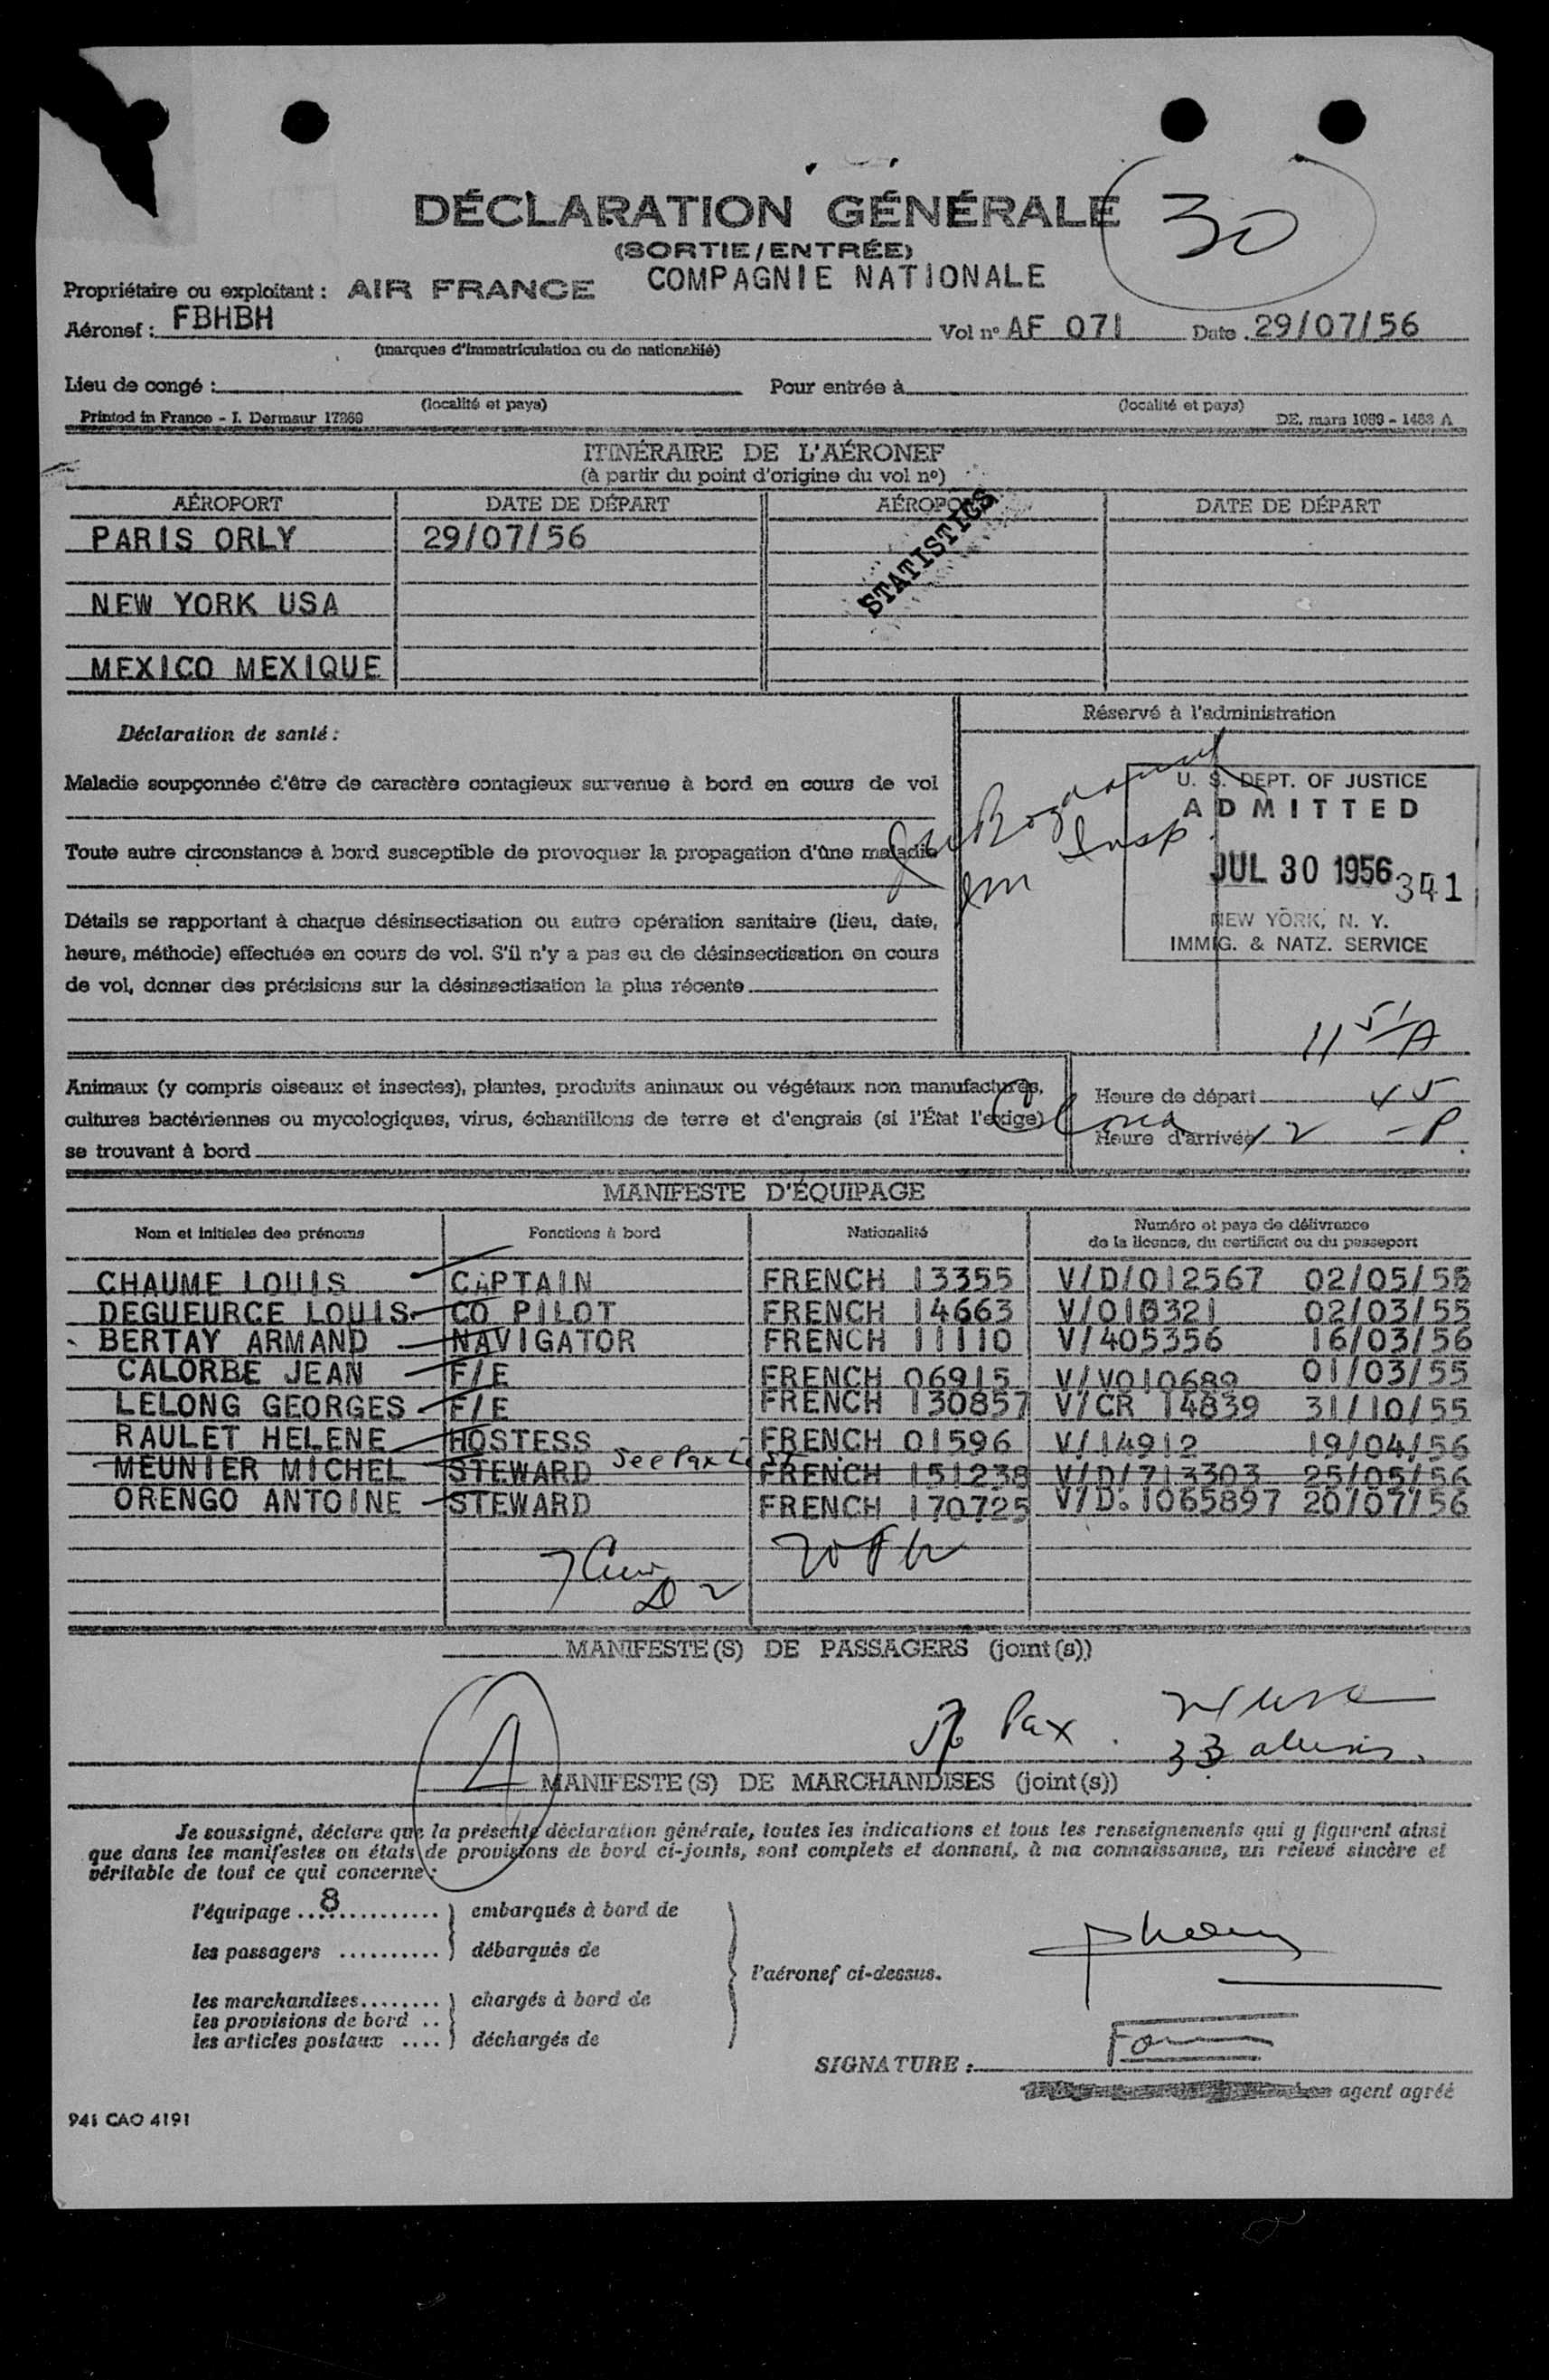 30
DÉCLARATION GÉNÉRALE
(SORTIE/ENTRÉE)
Propriétaire ou exploitant : AIR FRANCE COMPAGNIE NATIONALE
Aéronef : FBHBH Vol nº AF 071 Date 29/07/56
(marques d'immatriculation ou de nationalité)
Lieu de congé : Pour entrée à
(localité et pays) (localité et pays)
Printed in France - I. Dermaur 17269 DE. mars
ITINÉRAIRE DE L'AÉRONEF
(à partir du point d'origine du vol nº)
AÉROPORT DATE DE DÉPART AÉROPORT DATE DE DÉPART
STATISTICS
PARIS ORLY 29/07/56
NEW YORK USA
MEXICO MEXIQUE
Réservé à l'administration
Déclaration de santé :
Maladie soupçonnée d'être de caractère contagieux survenue à bord en cours de vol
Toute autre circonstance à bord susceptible de provoquer la propagation d'une maladie
Détails se rapportant à chaque désinsectisation ou autre opération sanitaire (lieu, date,
heure, méthode) effectuée en cours de vol. S'il n'y a pas eu de désinsectisation en cours
de vol, donner des précisions sur la désinsectisation la plus récente
Insp
Imm
U. S. DEPT. OF JUSTICE
ADMITTED
JUL 30 1956 341
NEW YORK, N. Y.
IMMIG. & NATZ. SERVICE
11 51 A
Animaux (y compris oiseaux et insectes), plantes, produits animaux ou végétaux non manufacturés,
cultures bactériennes ou mycologiques, virus, échantillons de terre et d'engrais (si l'État l'exige)
se trouvant à bord
Heure de départ 45
Heure d'arrivée 12 - P
MANIFESTE D'ÉQUIPAGE
Nom et initiales des prénoms Fonctions à bord Nationalité Numéro et pays de délivrance
de la licence, du certificat ou du passeport
CHAUME LOUIS CAPTAIN FRENCH 13355 V/D/012567 02/05/56
DEGUEURCE LOUIS CO PILOT FRENCH 14663 02/03/55
BERTAY ARMAND NAVIGATOR FRENCH 11110 V/405356 16/03/56
CALORBE JEAN F/E FRENCH 06915 V/VO10689 01/03/55
LELONG GEORGES F/E FRENCH 130857 V/CR 14839 31/10/55
RAULET HELENE HOSTESS FRENCH 01596 V/14912 19/04/56
MEUNIER MICHEL STEWARD See Pax List FRENCH 151238 V/D/713303 25/05/56
ORENGO ANTOINE STEWARD FRENCH 170725 V/D. 1065897 20/07/56
7 Crew
D 2
MANIFESTE(S) DE PASSAGERS (joint(s))
Pax
33 aliens
1
MANIFESTE(S) DE MARCHANDISES (joint(s))
Je soussigné, déclare que la présente déclaration générale, toutes les indications et tous les renseignements qui y figurent ainsi
que dans les manifestes ou états de provisions de bord ci-joints, sont complets et donnent, à ma connaissance, un relevé sincère et
véritable de tout ce qui concerne :
l'équipage 8 embarqués à bord de
les passagers débarqués de
l'aéronef ci-dessus.
les marchandises chargés à bord de
les provisions de bord
les articles postaux déchargés de
SIGNATURE :
agent agréé
941 CAO 4191